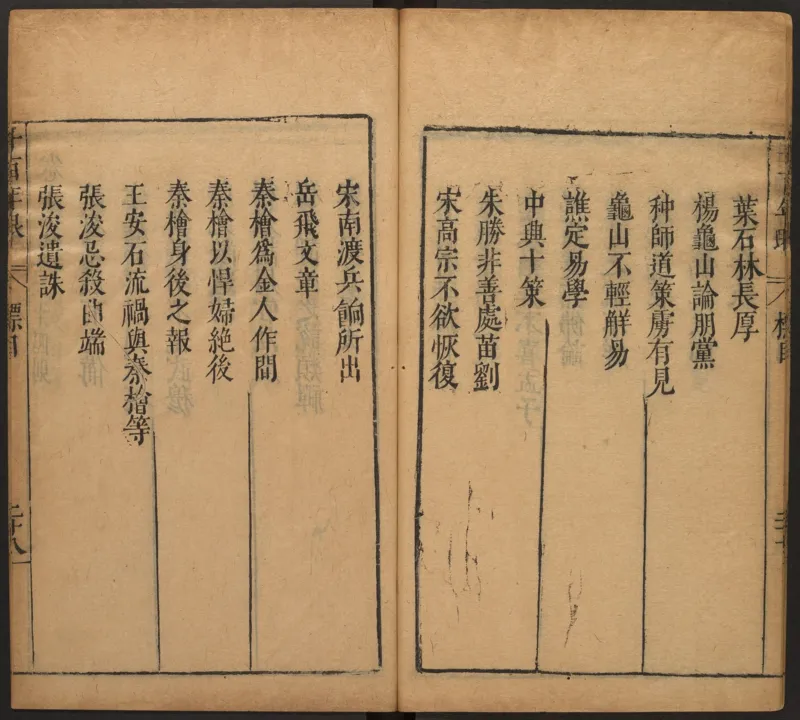 葉石林長厚
楊龜山論朋黨
种師道策虜有見
龜山不輕觧易
譙定易學
中興十策
朱勝非善處苗劉
宋高宗不欲恢復
宋南渡兵餉所出
岳飛文章
秦檜爲金人作間
秦檜以悍婦絶後
秦檜身後之報
王安石流禍與秦檜等
張浚忌殺曲端
張浚遺誅
標目
二十八